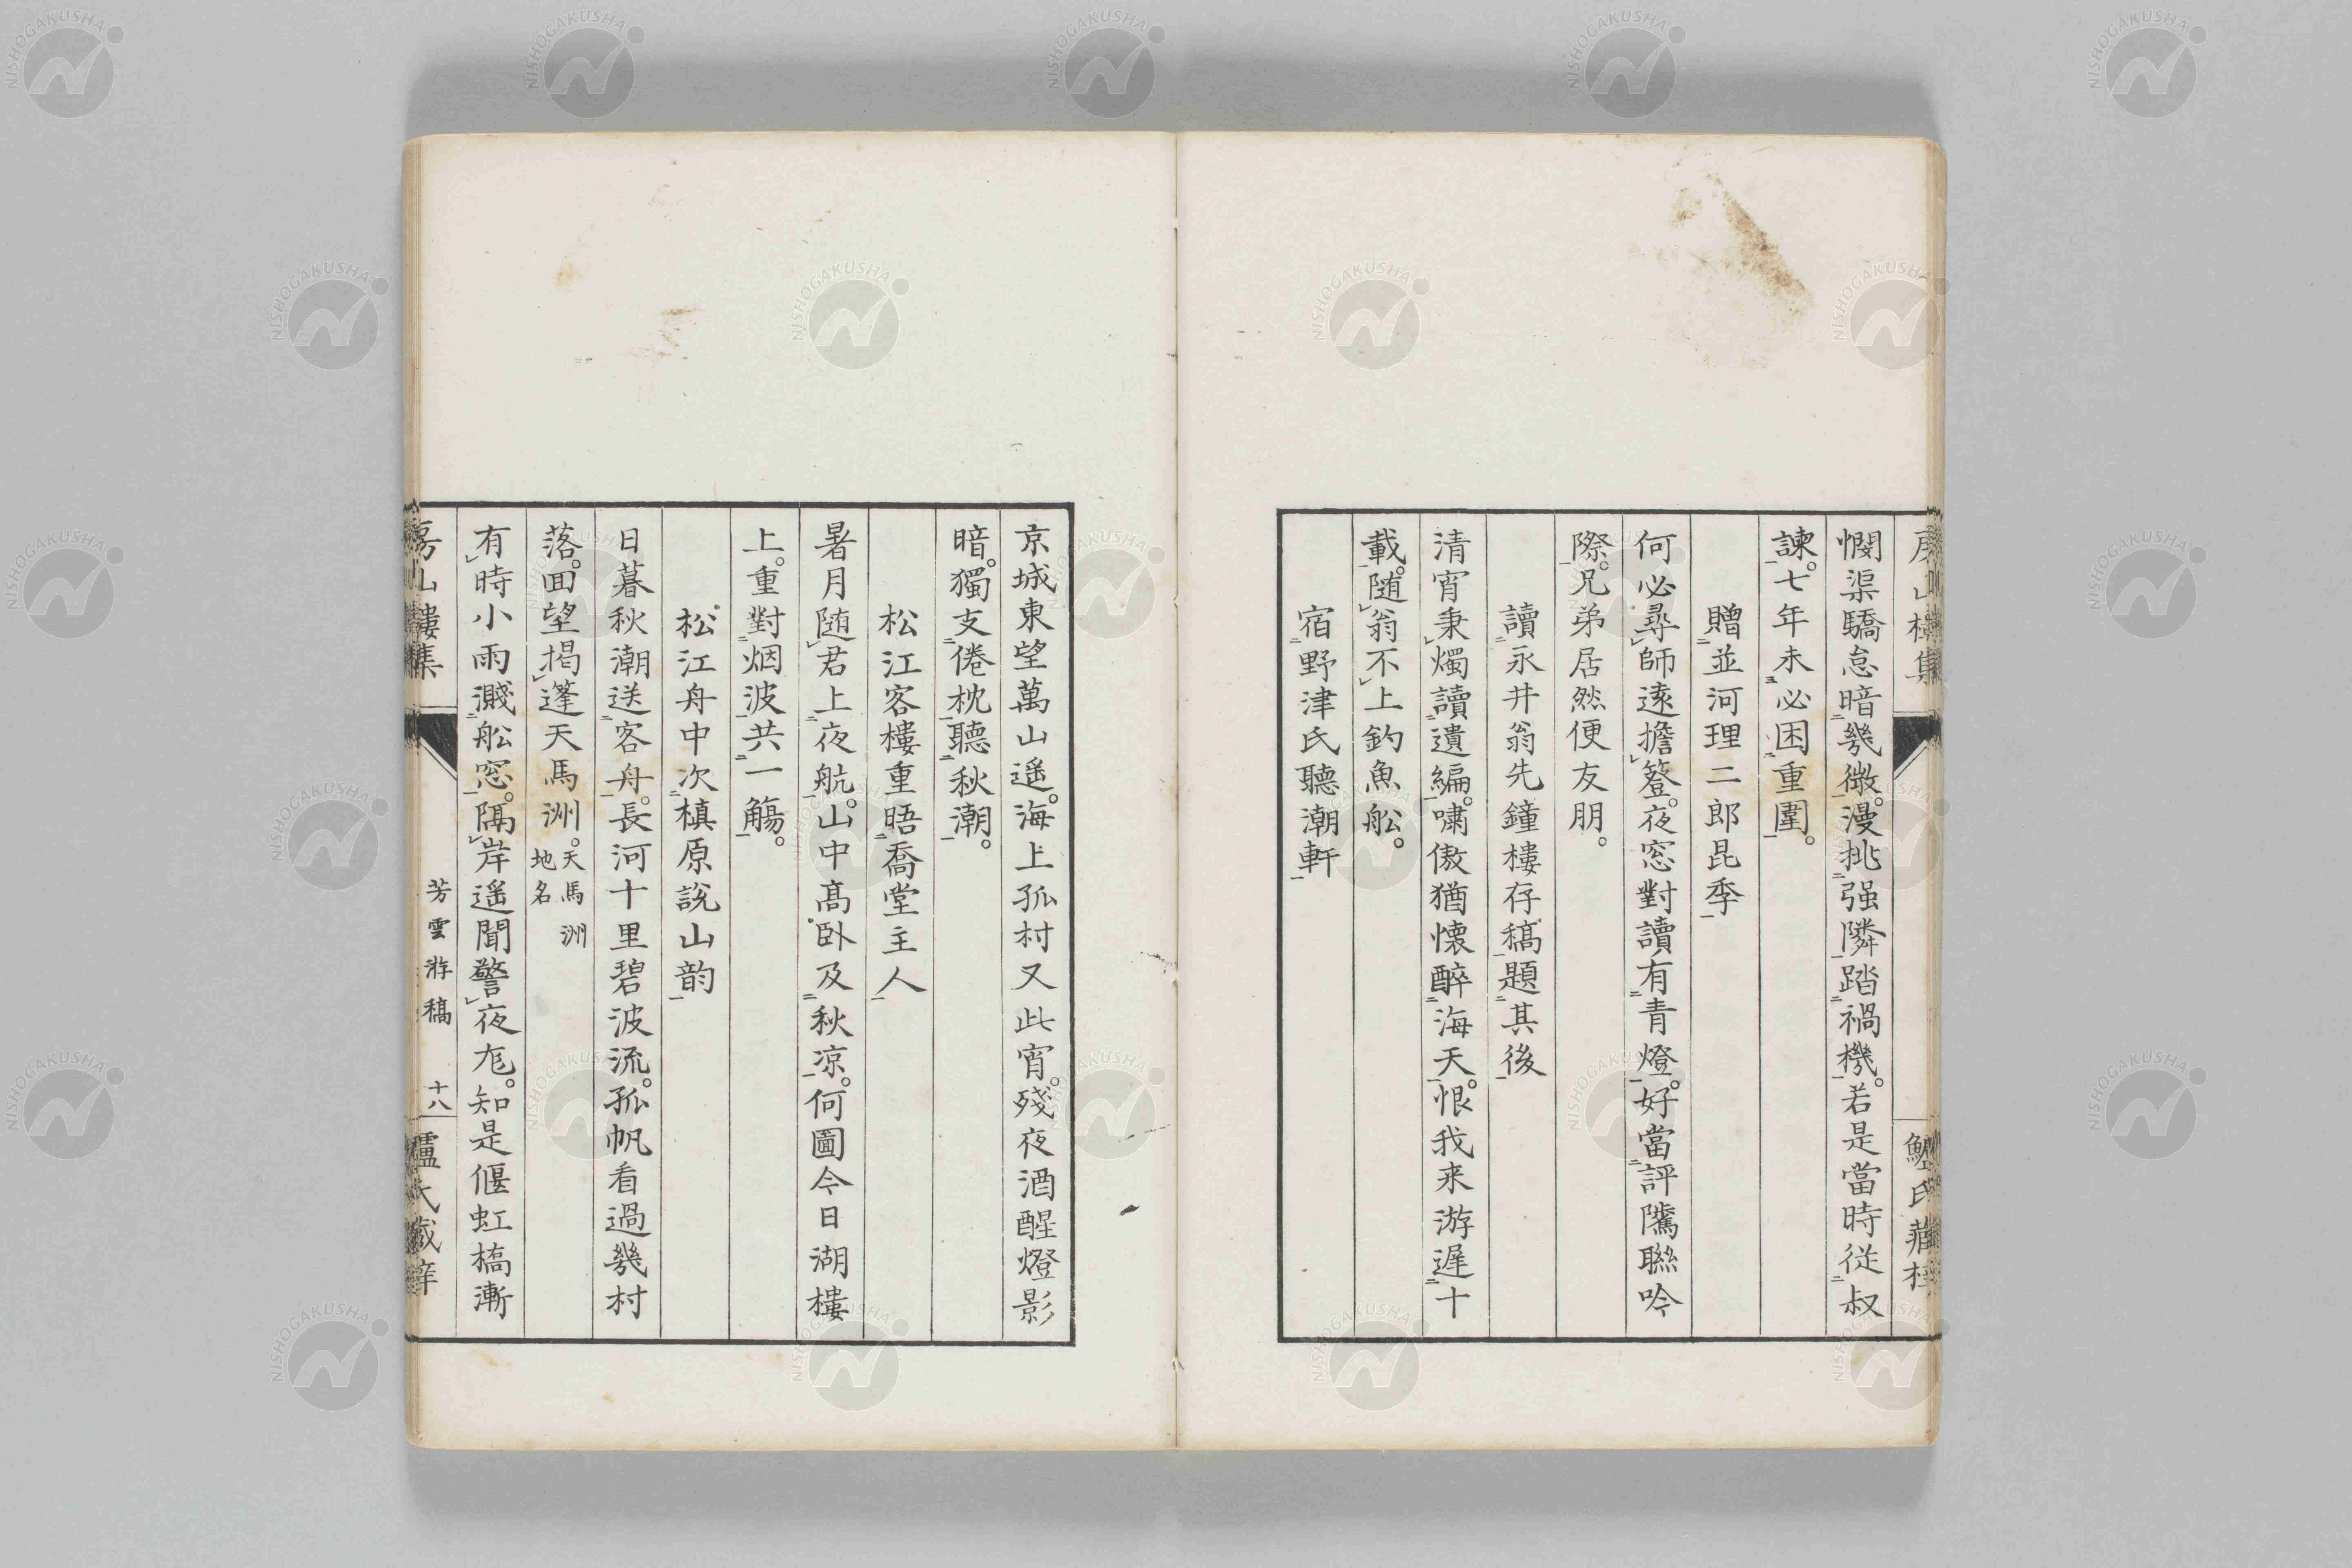 憫渠驕怠暗幾微。漫挑强隣踏禍機。若是當時従叔
諫。七年未必困重圍。
贈並河理二郎昆季
何必尋師遠擔簦。夜窓對讀有青燈。好當評隲聯吟
際。兄弟居然便友朋。
讀永井翁先鐘樓存稿題其後
清宵秉燭讀遺編。嘯傲猶懐醉海天。恨我来游遅十
載。随翁不上釣魚舩。
宿野津氏聽潮軒
京城東望萬山遥。海上孤村又此宵。殘夜酒醒燈影
暗。獨支倦枕聽秋潮。
松江客樓重晤喬堂主人
暑月随君上夜航。山中髙卧及秋凉。何圖今日湖樓
上。重對烟波共一觴。
松江舟中次槙原説山韵
日暮秋潮送客舟。長河十里碧波流。孤帆看過幾村
落。回望揭蓬天馬洲。天馬洲地名
有時小雨濺舩窓。隔岸遥聞警夜尨。知是偃虹橋漸
房山樓集
芳雲游稿
十八
房山樓集
NISHOGAKUSHA